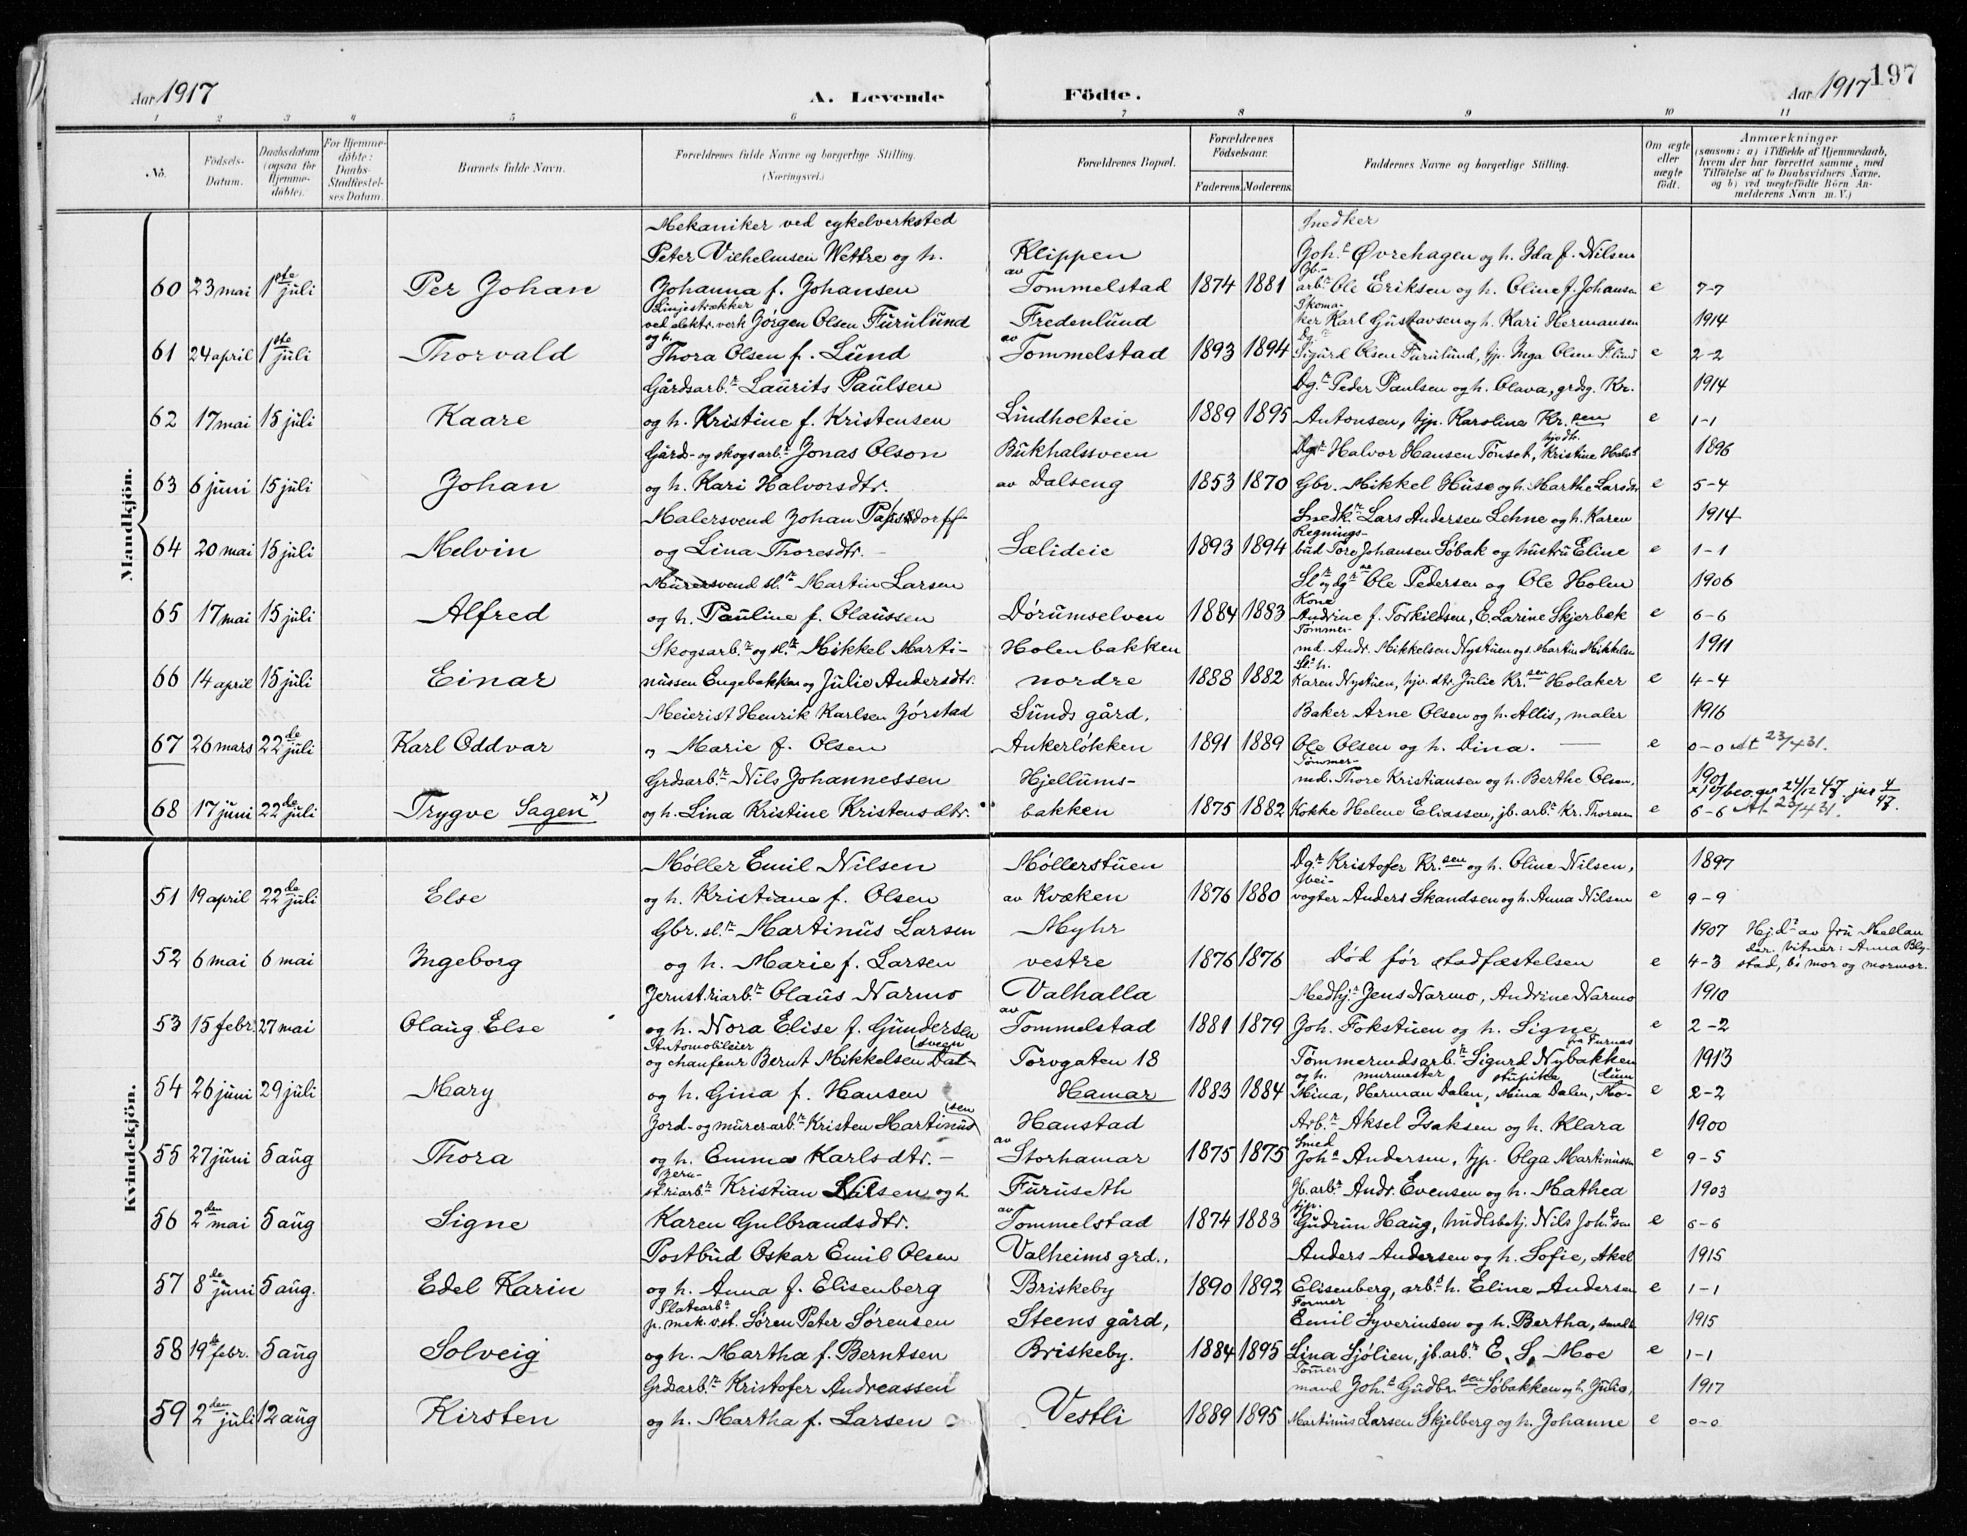 Aar 1917
A. Levende Födte.
Aar 1917
197
1 2 3 4 5 6 7 8 9 10 11
No.
Födsels-Datum.
Daabsdatum (ogsaa for Hjemmedöbte).
For Hjemmedöbte: Daabs-Stadfæstelses Datum.
Barnets fulde Navn.
Forældrenes fulde Navne og borgerlige Stilling. (Næringsvei.)
Forældrenes Bopæl.
Forældrenes Födselsaar.
Faderens. Moderens.
Faddernes Navne og borgerlige Stilling.
Om ægte eller uægte födt.
Anmærkninger
(saasom: a) i Tilfælde af Hjemmedaab, hvem der har forrettet samme, med Tilföielse af to Daabsvidners Navne. og b) ved uægtefödte Börn Anmelderens Navn m. V.)
Mandkjön.
Mekaniker ved cykelverksted Snedker
Peter Vilhelmsen Wettre og h. Klippen Joh.s Øvrehagen og h. Ida f. Nilsen
60 23 mai 1ste juli Per Johan Johanna f. Johansen av Tommelstad 1874 1881 arb.r Ole Eriksen og h. Oline f. Johansen e 7-7
Linjestrækker ved elektr. verk Jørgen Olsen Furulund Fredenlund Skomaker Karl Gustavsen og h. Kari Hermansen 1914
61 24 april 1ste juli Thorvald og h. Thora Olsen f. Lund av Tommelstad 1893 1894 Sigurd Olsen Furulund, tjp. Inga Olsen F.lund e 2-2
Gårdsarb.r Laurits Paulsen Dg.r Peder Paulsen og h. Olava, grdsg. Kr. 1914
62 17 mai 15 juli Kaare og h. Kristine f. Kristensen Lindholteie 1889 1895 Antonsen, tjp. Karoline Kr.sen e 1-1
Gård- og skogsarb.r Jonas Olson Bukhalssveen Dg.r Halvor Hansen Tønset, hjvdtr. Kristine 1896
63 6 juni 15 juli Johan og h. Kari Halvorsdtr. av Dalseng 1853 1870 Gbr. Mikkel Huse og h. Marthe Larsdtr e 5-4
Malersvend Johan Snedk.r Lars Andersen Lehne og h. Karen 1914
64 20 mai 15 juli Melvin og Lina Thoresdtr. Sælideie 1893 1894 Regningsbud Tore Johansen Søbak og hustru Eline e 1-1
Murersvend sl.r Martin Larsen Sl.r og dg.r Ole Pedersen og Ole Holen 1906
65 17 mai 15 juli Alfred og h. Pauline f. Olaussen Dørumselven 1884 1883 Kone Andrine f. Torkildsen, E. Larine Skjerbæk e 6-6
Skogsarb.r og sl.r Mikkel Marti- Holenbakken Tømmermd. Andr. Mikkelsen Nystuen og s. Martin Mikkelsen 1911
66 14 april 15 juli Einar nussen Engebakken og Julie Andersdtr. nordre 1888 1882 Karen Nystuen, hjv. dtr. Julie Kr.sen Holaker e 4-4
Meierist Henrik Karlsen Jørstad Sunds gård, Baker Arne Olsen og h. Allis, maler 1916
67 26 mars 22de juli Karl Oddvar " Marie f. Olsen Ankerløkken 1891 1889 Ole Olsen og h. Dina. e 0-0 At 23/4 31.
Grdsarb.r Nils Johannessen Hjellums- Tømmermd. Thore Kristiansen og h. Berthe Olsen, 1901
68 17 juni 22de juli Trygve Sagen x) og h. Lina Kristine Kristensdtr. bakken 1875 1882 Kokke Helene Eliassen, jb. arb.r Kr. Thoresen e 6-6 At 23/4 31.
Kvindekjön.
Møller Emil Nilsen Møllerstuen Dg.r Kristofer Kr.sen og h. Oline Nilsen, 1897
51 19 april 22de juli Else og h. Kristiane f. Olsen av Kvæken 1876 1880 vogter Anders Skandsen og h. Anna Nilsen e 9-9
Gbr. sl.r Martinus Larsen Myhr 1907 Hj.d.t av Jru Mellan
52 6 mai 6 mai Ingeborg og h. Marie f. Larsen vestre 1876 1876 Død før stadfæstelsen e 4-3 der. Vitner: Anna Blystad, bi mor og mormor.
Jernstøriarb.r Olaus Narmo Valhalla Medhj. Jens Narmo, Andrine Narmo 1910
53 15 febr. 27 mai Olaug Else og h. Nora Elise f. Gundersen av Tommelstad 1881 1879 Joh. Fokstuen og h. Signe fra Furnes e 2-2
Automobileier og chaufeur Bernt Mikkelsen Dalsvegn Torvgaten 18 Tømmermdsarb.r Sigurd Nybakken 1913
54 26 juni 29 juli Mary og h. Gina f. Hansen Hamar 1883 1884 og h. Mina, murmester Herman Dalen, stupike Mina Dalen, Modum e 2-2
Jord- og murerarb.r Kristen Martinussen Hanstad Arb.r Aksel Isaksen og h. Klara 1900
55 27 juni 5 aug Thora og h. Emma Karlsdtr. av Storhamar 1875 1875 Smed Joh.s Andersen, tjp. Olga Martinussen e 9-5
Jernstøriarb.r Kristian Nilsen og h Furuseth Jb. arb.r Andr. Evensen og h. Mathea 1903
56 2den mai 5 aug Signe Karen Gulbrandsdtr. av Tommelstad 1874 1883 tjp. Gudrun Haug, hndlsbetj. Nils Joh.sen e 6-6
Postbud Oskar Emil Olsen Valheims grd., Anders Andersen og h. Sofie, Aksel 1915
57 8de juni 5 aug. Edel Karin og h. Anna f. Elisenberg Briskeby 1890 1892 Elisenberg, arb.s h. Eline Andersen e 1-1
Platearb.r p. mek. v.st. Søren Peter Sørensen Steens gård, Former Emil Syverinsen og h. Bertha, 1915
58 19de febr. 5 aug Solveig og h. Martha f. Berntsen Briskeby. 1884 1895 Lina Sjølien, jb. arb.r E. S. Moe e 1-1
Grdsarb.r Kristofer Andreassen Tømmermand Joh.s Gudbr.sen Søbakken og h. Julie, 1917
59 2den juli 12 aug Kirsten og h. Martha f. Larsen Vestli 1889 1895 Martinus Larsen Skjelberg og h. Johanne e 0-0